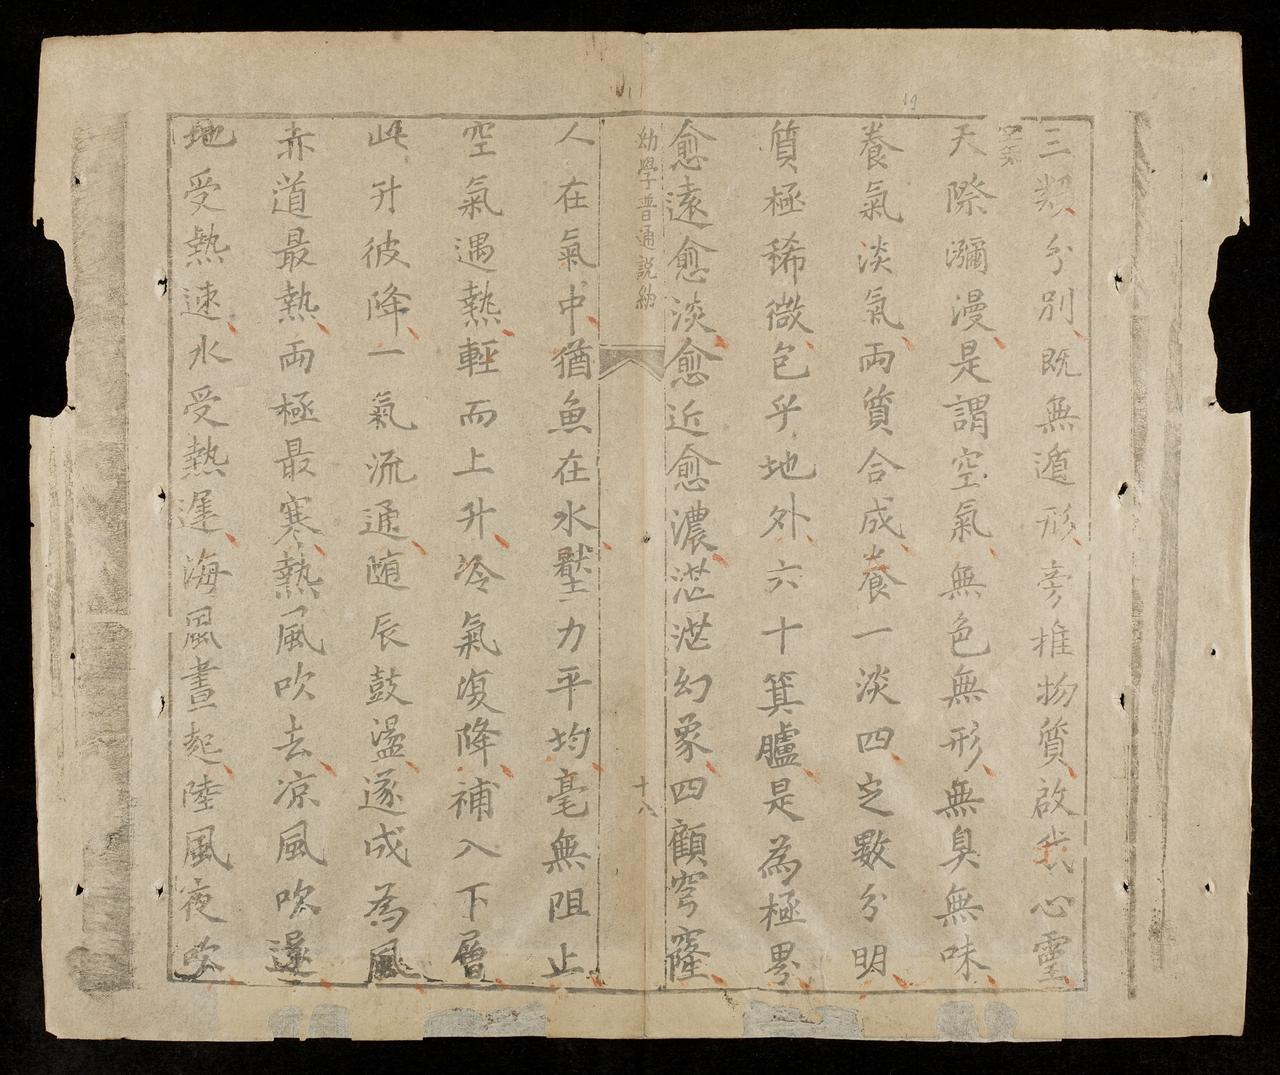 三類分別既無遁形旁推物質啟我心靈
空氣
天際瀰漫是謂空氣無色無形無臭無味
養氣淡氣両質合成養一淡四定數分明
質極稀微包乎地外六十箕臚是為極界
愈遠愈淡愈近愈濃茫茫幻象四顧穹窿
幼學普通説約
十八
人在氣中猶魚在水壓力平均毫無阻止
空氣遇熱輕而上升冷氣復降補入下層
此升彼降一氣流通随辰鼓盪遂成為風
赤道最熱両極最寒熱風吹去凉風吹還
地受熱速水受熱遲海風晝起陸風夜吹